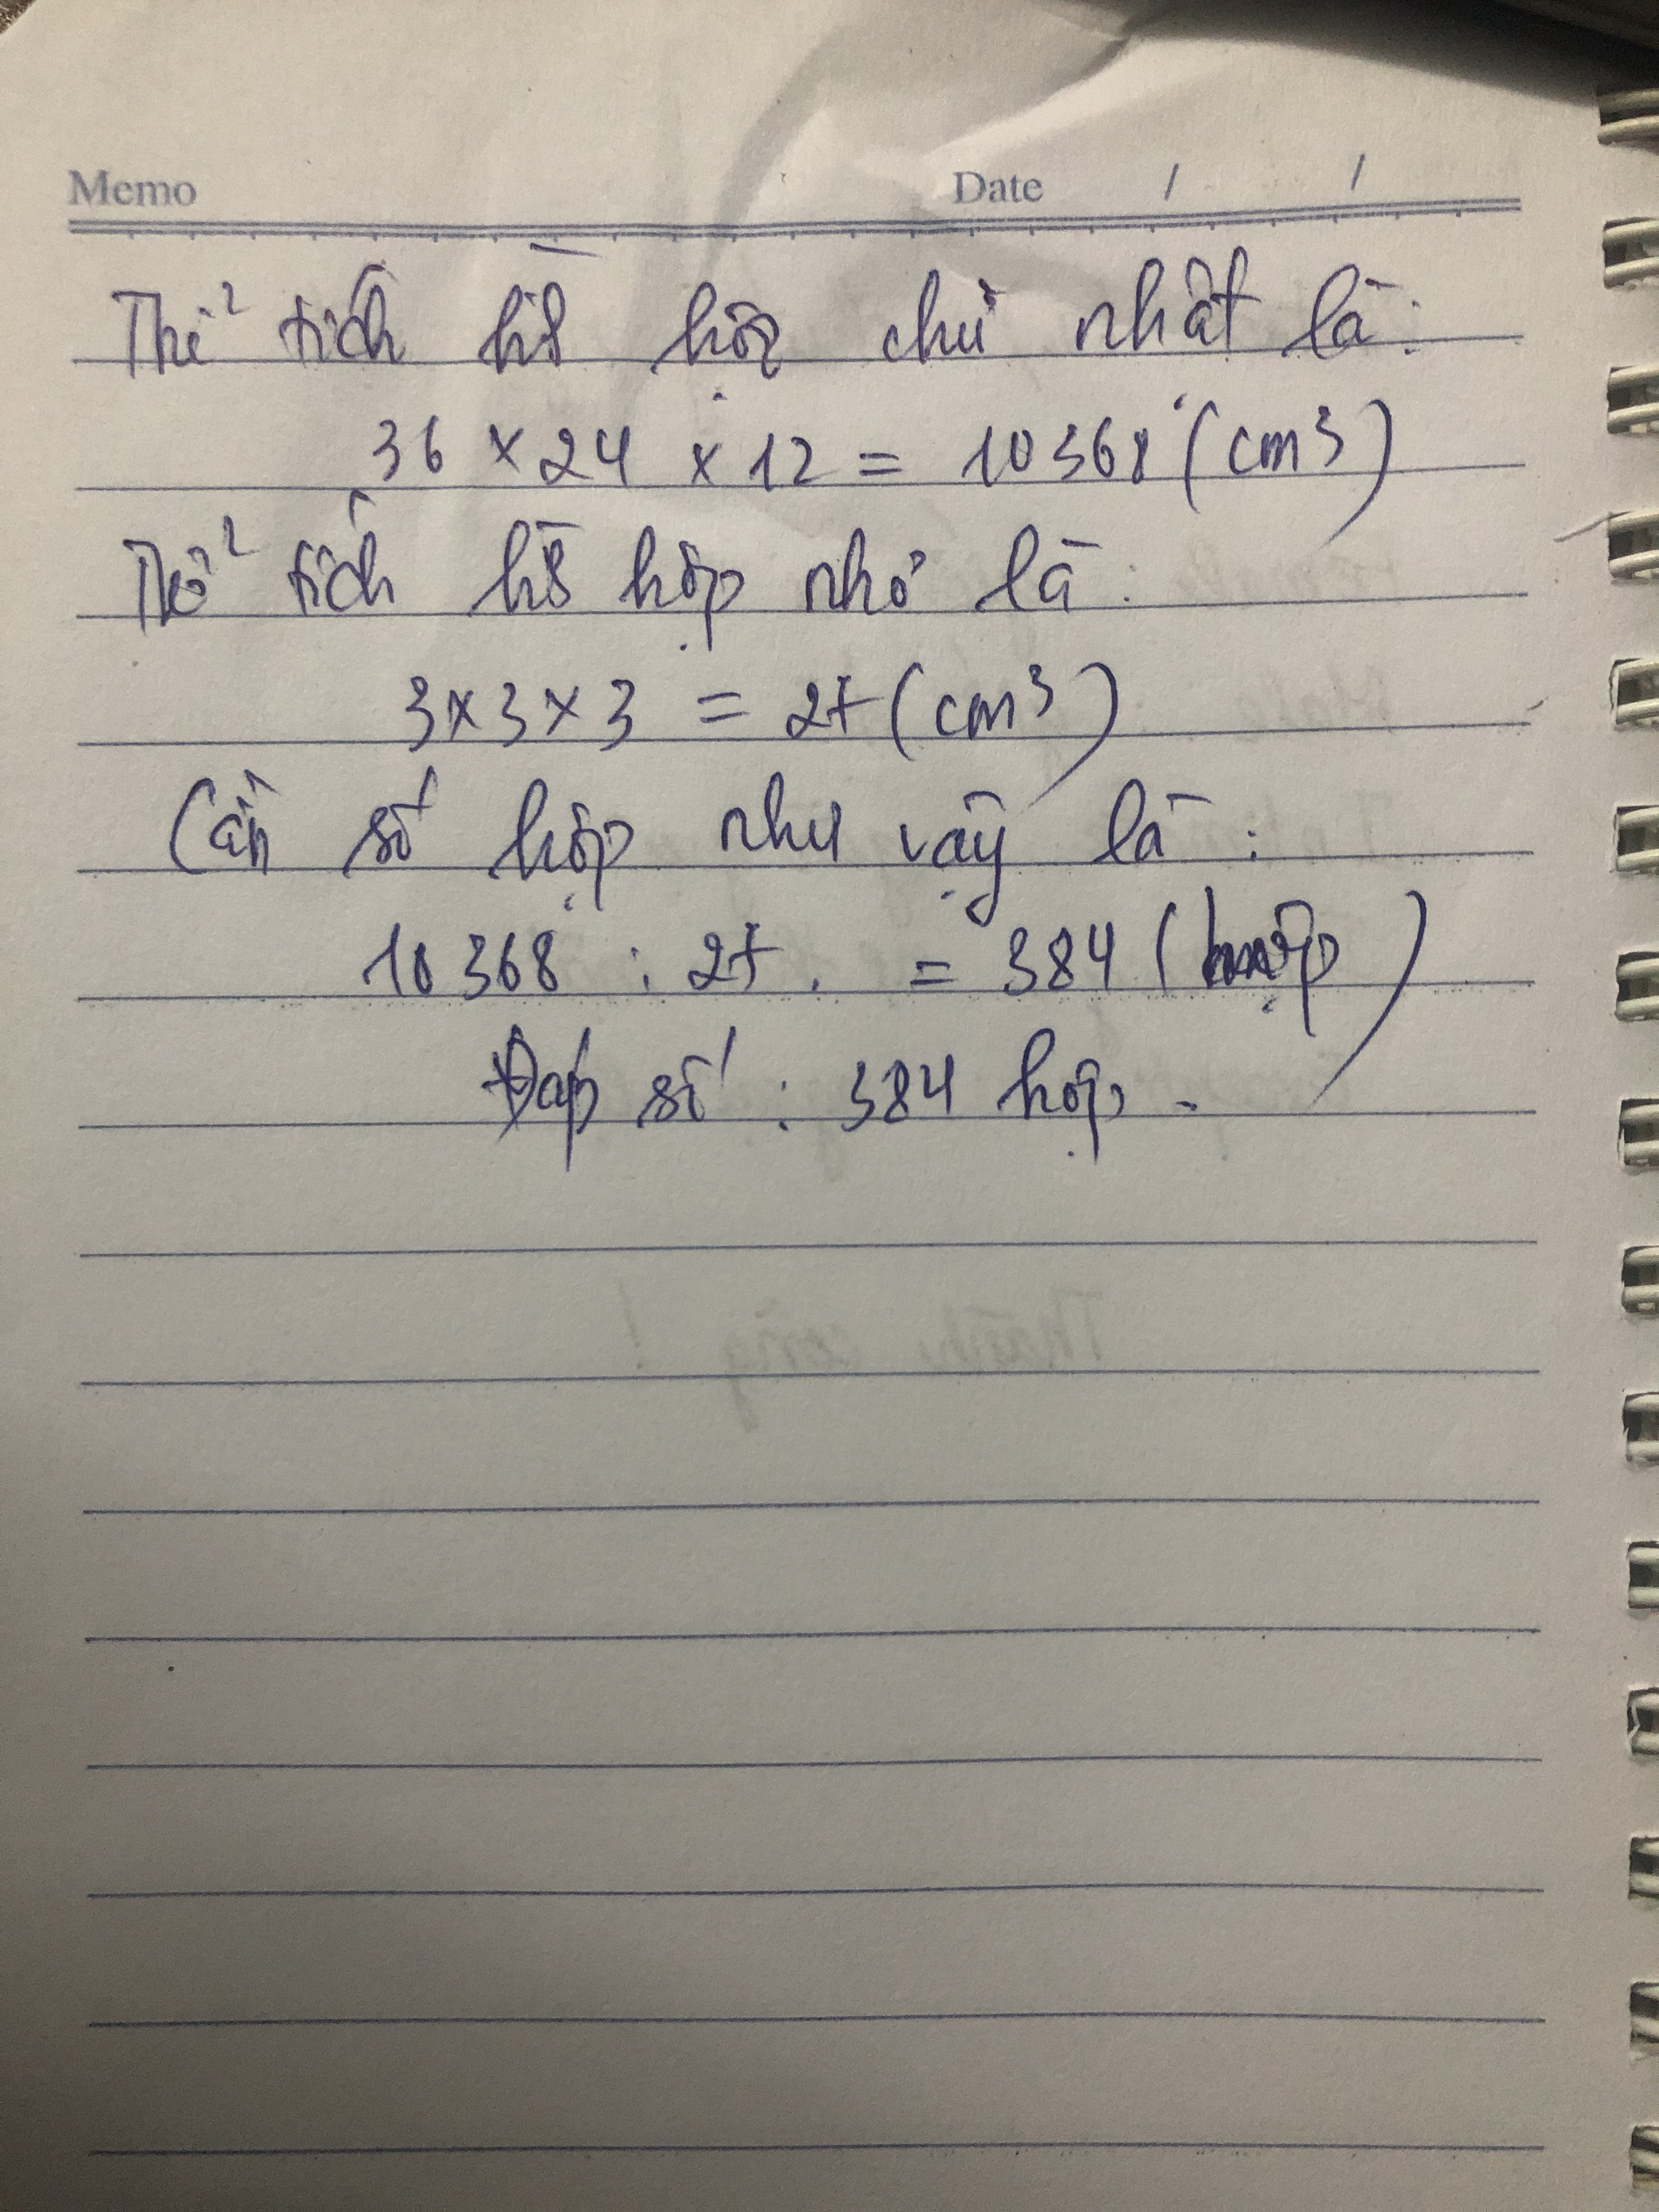 Memo Date / /
Thể tích hh hộp chữ nhật là:
36 x 24 x 12 = 10368 (cm3)
Thể tích hh hộp nhỏ là:
3x3x3 = 27 (cm3)
Cần số hộp như vậy là :
10368 : 27 . = 384 (hộp)
Đáp số : 384 hộp.